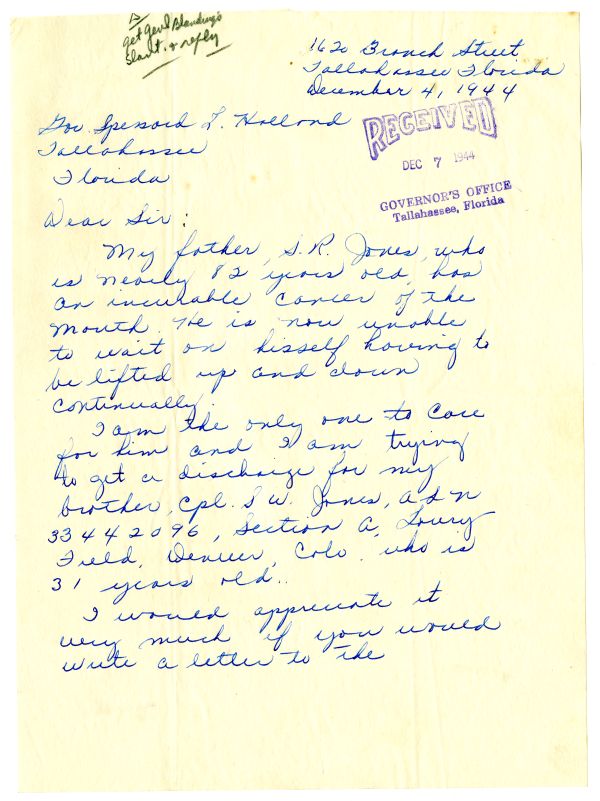 get Genl Blanding's
slant. & reply
1620 Branch Street
Tallahassee Florida
December 4, 1944
Gov. Spessard L. Holland
Tallahassee
Florida
RECEIVED
DEC 7 1944
GOVERNOR'S OFFICE
Tallahassee, Florida
Dear Sir:
My father, S.R. Jones, who
is nearly 82 years old, has
an incurable cancer of the
mouth. He is now unable
to wait on hisself having to
be lifted up and down
continually.
I am the only one to care
for him and I am trying
to get a discharge for my
brother, Cpl. S W. Jones, A S N
33442096, Section A, Lowry
Field, Denver, Colo. who is
31 years old..
I would appreciate it
very much if you would
write a letter to the